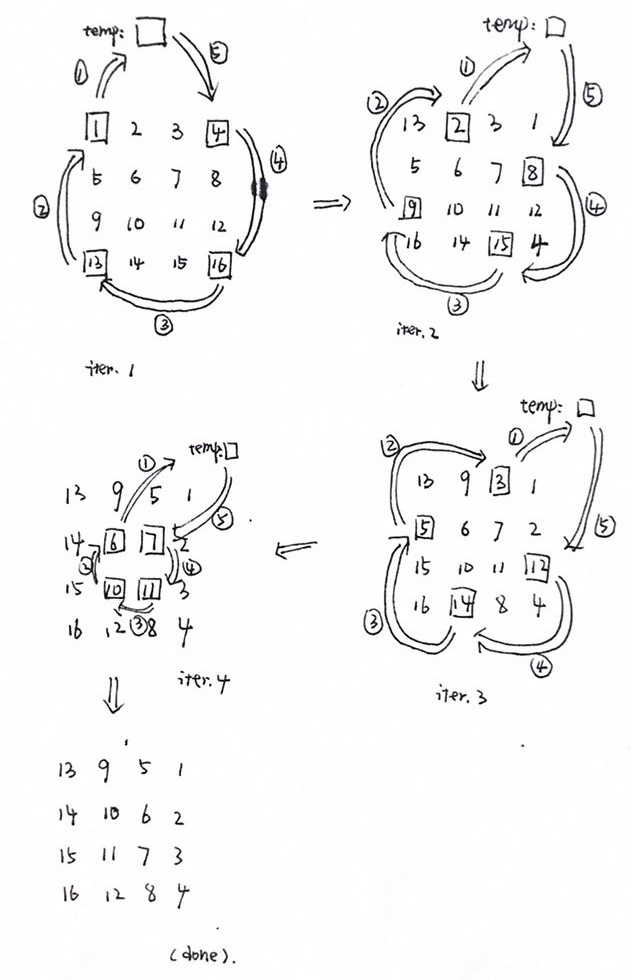 temp:
① ⑤
1 2 3 4
④
5 6 7 8
②
9 10 11 12
13 14 15 16
③
iter. 1
temp:
① ⑤
②
13 2 3 1
5 6 7 8
④
9 10 11 12
16 14 15 4
③
iter. 2
temp:
① ②
13 9 3 1
⑤
5 6 7 2
15 10 11 12
16 14 8 4
③
④
iter. 3
temp:
①
13 9 5 1
⑤
14 6 7 2
② ④
15 10 11 3
16 12 ③ 8 4
iter. 4
13 9 5 1
14 10 6 2
15 11 7 3
16 12 8 4
(done).